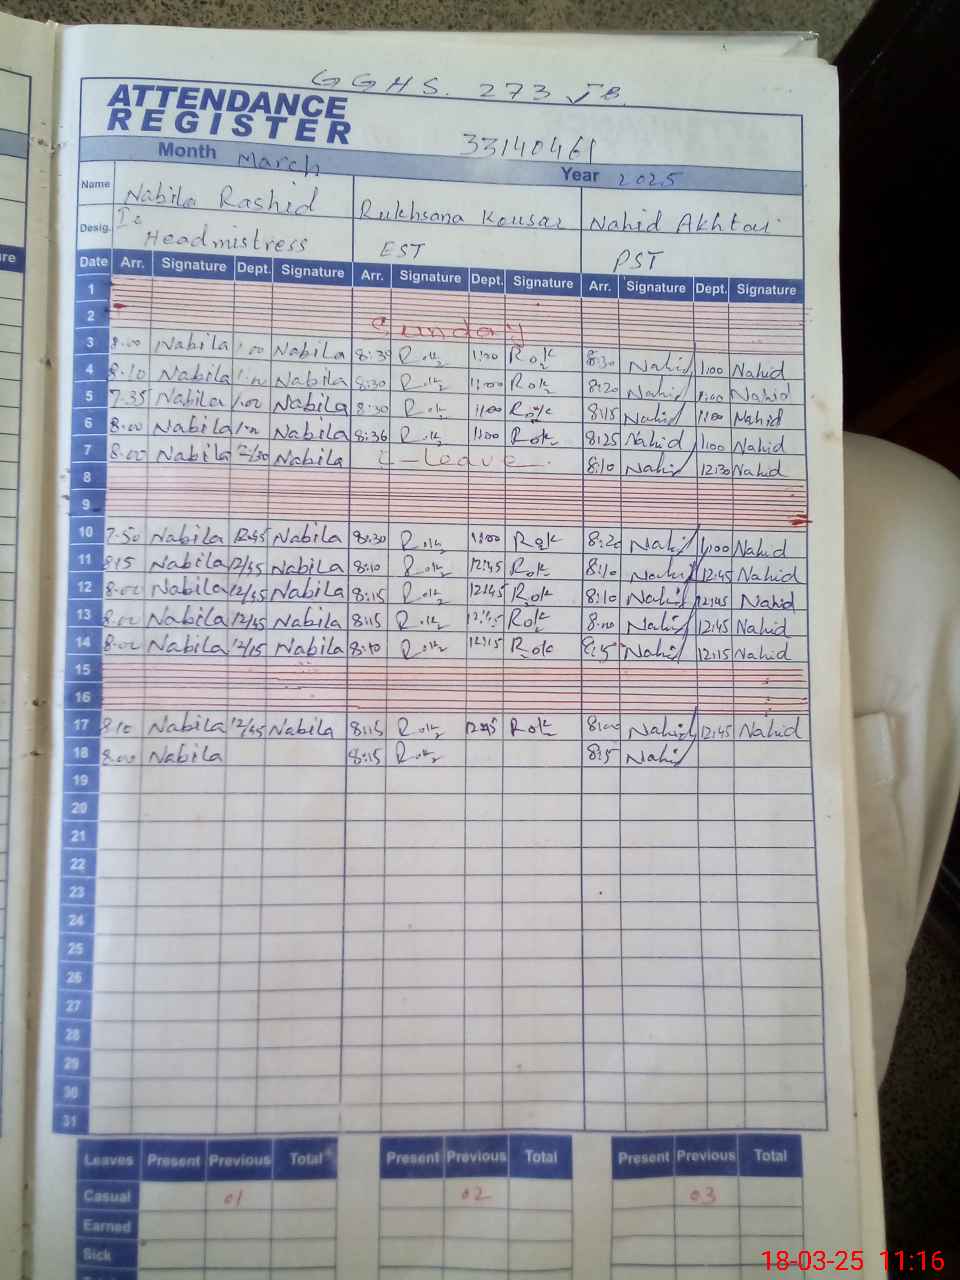 GGHS. 273 JB.
ATTENDANCE
REGISTER
33140461
Month March Year 2025
Name Nabila Rashid Rukhsana Kousar Nahid Akhtar
Desig. Headmistress EST PST
Date Arr. Signature Dept. Signature Arr. Signature Dept. Signature Arr. Signature Dept. Signature
1
2 Sunday
3 8.00 Nabila 1.00 Nabila 8:30 1:00 8:30 Nahid 1:00 Nahid
4 8.10 Nabila Nabila 8:30 1:00 8:20 Nahid 1:00 Nahid
5 7.35 Nabila 1.00 Nabila 8:30 1:00 8:15 Nahid 1:00 Nahid
6 8.00 Nabila Nabila 8:36 1:00 8:25 Nahid 1:00 Nahid
7 8.00 Nabila 12/30 Nabila C-leave. 8:10 Nahid 12:30 Nahid
8
9
10 7.50 Nabila 12.45 Nabila 8:30 1:00 8:20 Nahid 1:00 Nahid
11 8.15 Nabila 12/45 Nabila 8:10 12:45 8:10 Nahid 12:45 Nahid
12 8.00 Nabila 12/45 Nabila 8:15 12:45 8:10 Nahid 12:45 Nahid
13 8.00 Nabila 12/45 Nabila 8:15 12:45 8:00 Nahid 12:45 Nahid
14 8.00 Nabila 12/15 Nabila 8:10 12:15 Nahid 12:15 Nahid
15
16
17 8.10 Nabila 12/45 Nabila 8:15 12:45 8:00 Nahid 12:45 Nahid
18 8.00 Nabila 8:15 Nahid
19
20
21
22
23
24
25
26
27
28
29
30
31
Leaves Present Previous Total Present Previous Total Present Previous Total
Casual 01 02 03
Earned
Sick
18-03-25 11:16